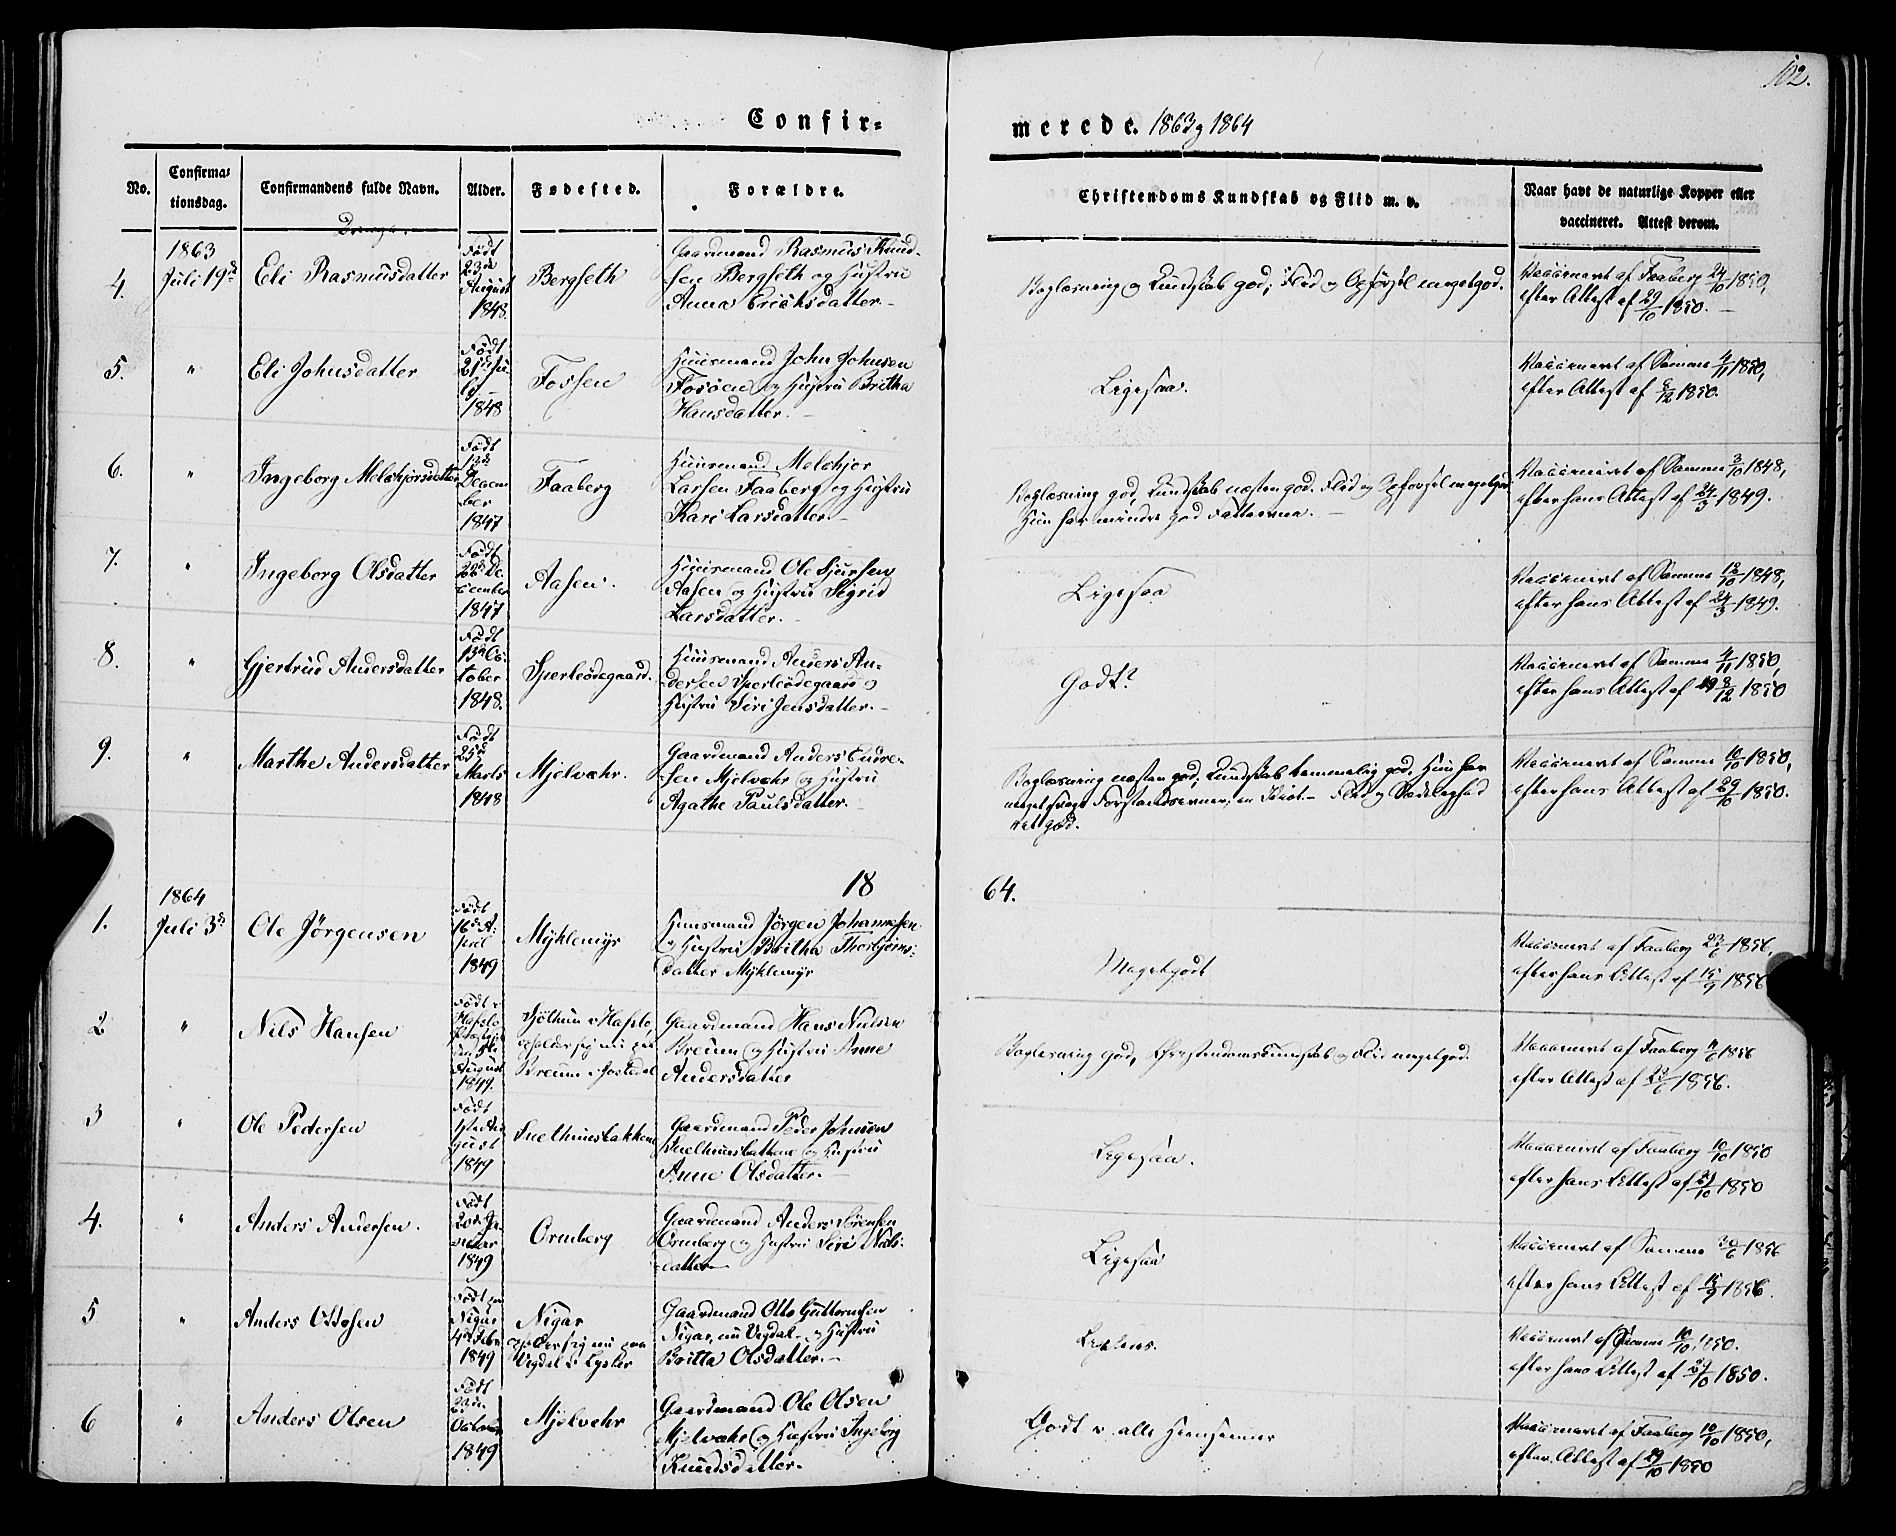 102.
Confir-
merede. 1863 og 1864
No.
Confirma-
tionsdag.
Confirmandens fulde Navn.
Alder.
Fødested.
Forældre.
Christendoms Kundskab og Flid m. v.
Naar havt de naturlige Kopper eller
vaccineret. Attest derom.
4.
1863
Juli 19de
Eli Rasmusdatter
Født
23de
August
1848.
Bergseth
Gaardmand Rasmus Knud-
sen Bergseth og Hustru
Anna Ericksdatter.
Boglæsning og Kundskab god; Flid og Opførsel meget god.
Vaccineret af Faaberg 24/10 1850,
efter Attest af 29/10 1850.
5.
"
Eli Johnsdatter
Født
21de Ju-
ly
1848
Fossen
Huusmand John Johnsen
Fossen og Hustru Britha
Hansdatter.
Ligesaa.
Vaccineret af Samme 4/11 1850,
efter Attest af 8/12 1850.
6.
"
Ingeborg Melchjorsdatter
Født
13de
Decem-
ber
1847
Faaberg
Huusmand Melchjor
Larsen Faaberg og Hustru
Kari Larsdatter.
Boglæsning god, Kundskab næsten god. Flid og Opførsel meget god
Hun har mindre god Fatteevne.
Vaccineret af Samme 3/10 1848,
efter hans Attest af 24/3 1849.
7.
"
Ingeborg Olsdatter
Født
22de De-
cember
1847
Aasen.
Huusmand Ole Sjursen
Aasen og Hustru Sigrid
Larsdatter.
Ligesaa
Vaccineret af Samme 18/10 1848,
efter hans Attest af 24/3 1849.
8.
"
Gjertrud Andersdatter
Født
13de Oc-
tober
1848.
Sperleødegaard.
Huusmand Anders An-
dersen Sperleødegaard og
Hustru Siri Jensdatter.
Godt.
Vaccineret af Samme 4/11 1850,
efter hans Attest af 8/12 1850
9.
"
Marthe Andersdatter
Født
25de
Marts
1848
Mjelvæhr.
Gaardmand Anders Endre-
sen Mjelvæhr og Hustru
Agathe Paulsdatter.
Boglæsning næsten god; Kundskab temmelig god. Hun har
meget svage Forstandsevner; en Idiot. Flid og Sædelighed
god.
Vaccineret af Samme 10/10 1850,
efter hans Attest af 29/10 1850.
18
64.
1.
1864
Juli 3de
Ole Jörgensen
Født
16de A-
pril
1849
Myklemyr
Huusmand Jörgen Johannesen
og Hustru Britha Thorbjörns-
datter Myklemyr
Meget godt
Vaccineret af Faaberg 23/6 1856,
efter hans Attest af 15/9 1856
2
"
Nils Hansen
Født i
Hafslo
August
1849.
i Hafslo,
opholder sig nu paa
Breum i Jostedal
Gaardmand Hans Nielsen
Breum og Hustru Anne
Andersdatter
Boglæsning god, Christendomskundskab og Flid meget god.
Vaccineret af Faaberg 11/6 1856
efter Attest af 23/6 1856.
3
"
Ole Pedersen
Født
1ste Au
gust
1849
Snethunsbakkene
Gaardmand Peder Johnsen
Snethunsbakkene og Hustru
Anne Olsdatter.
Ligesaa.
Vaccineret af Faaberg 10/10 1850
efter hans Attest af 29/10 1850
4.
"
Anders Andersen.
Født
20de Ja-
nuar
1849
Ormberg
Gaardmand Anders Sörensen
Ormberg og Hustru Siri Niels-
datter
Ligesaa
Vaccineret af Samme 30/6 1856
efter hans Attest af 15/9 1856.
5
"
Anders Ottosen
Født paa
Nigar
4de Febr
1849
Nigar
opholder sig nu paa
Vigdal i Lyster
Gaardmand Otto Guttormsen
Nigar, nu Vigdal og Hustru
Britta Olsdatter.
Vaccineret af Samme 10/10 1850.
efter hans Attest af 29/10 1850.
6
"
Anders Olsen
Født
22de
October
1849
Mjelvehr
Gaardmand Ole Olsen
Mjelvæhr og Hustru Ingeborg
Knudsdatter.
Godt i alle Henseender
Vaccineret af Faaberg 10/10 1850,
efter Attest af 29/10 1850